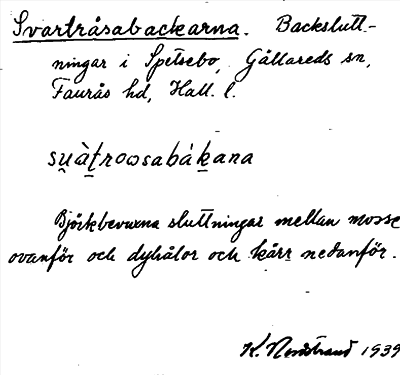 Svartråsabackarna. Backslutt-
ningar i Spetsebo, Gällareds sn,
Faurås hd, Hall. l.
su̯àt̠roωsabàk̠ana
Björkbevuxna sluttningar mellan mosse
ovanför och dyhålor och kärr nedanför.
K. Nordstrand 1939